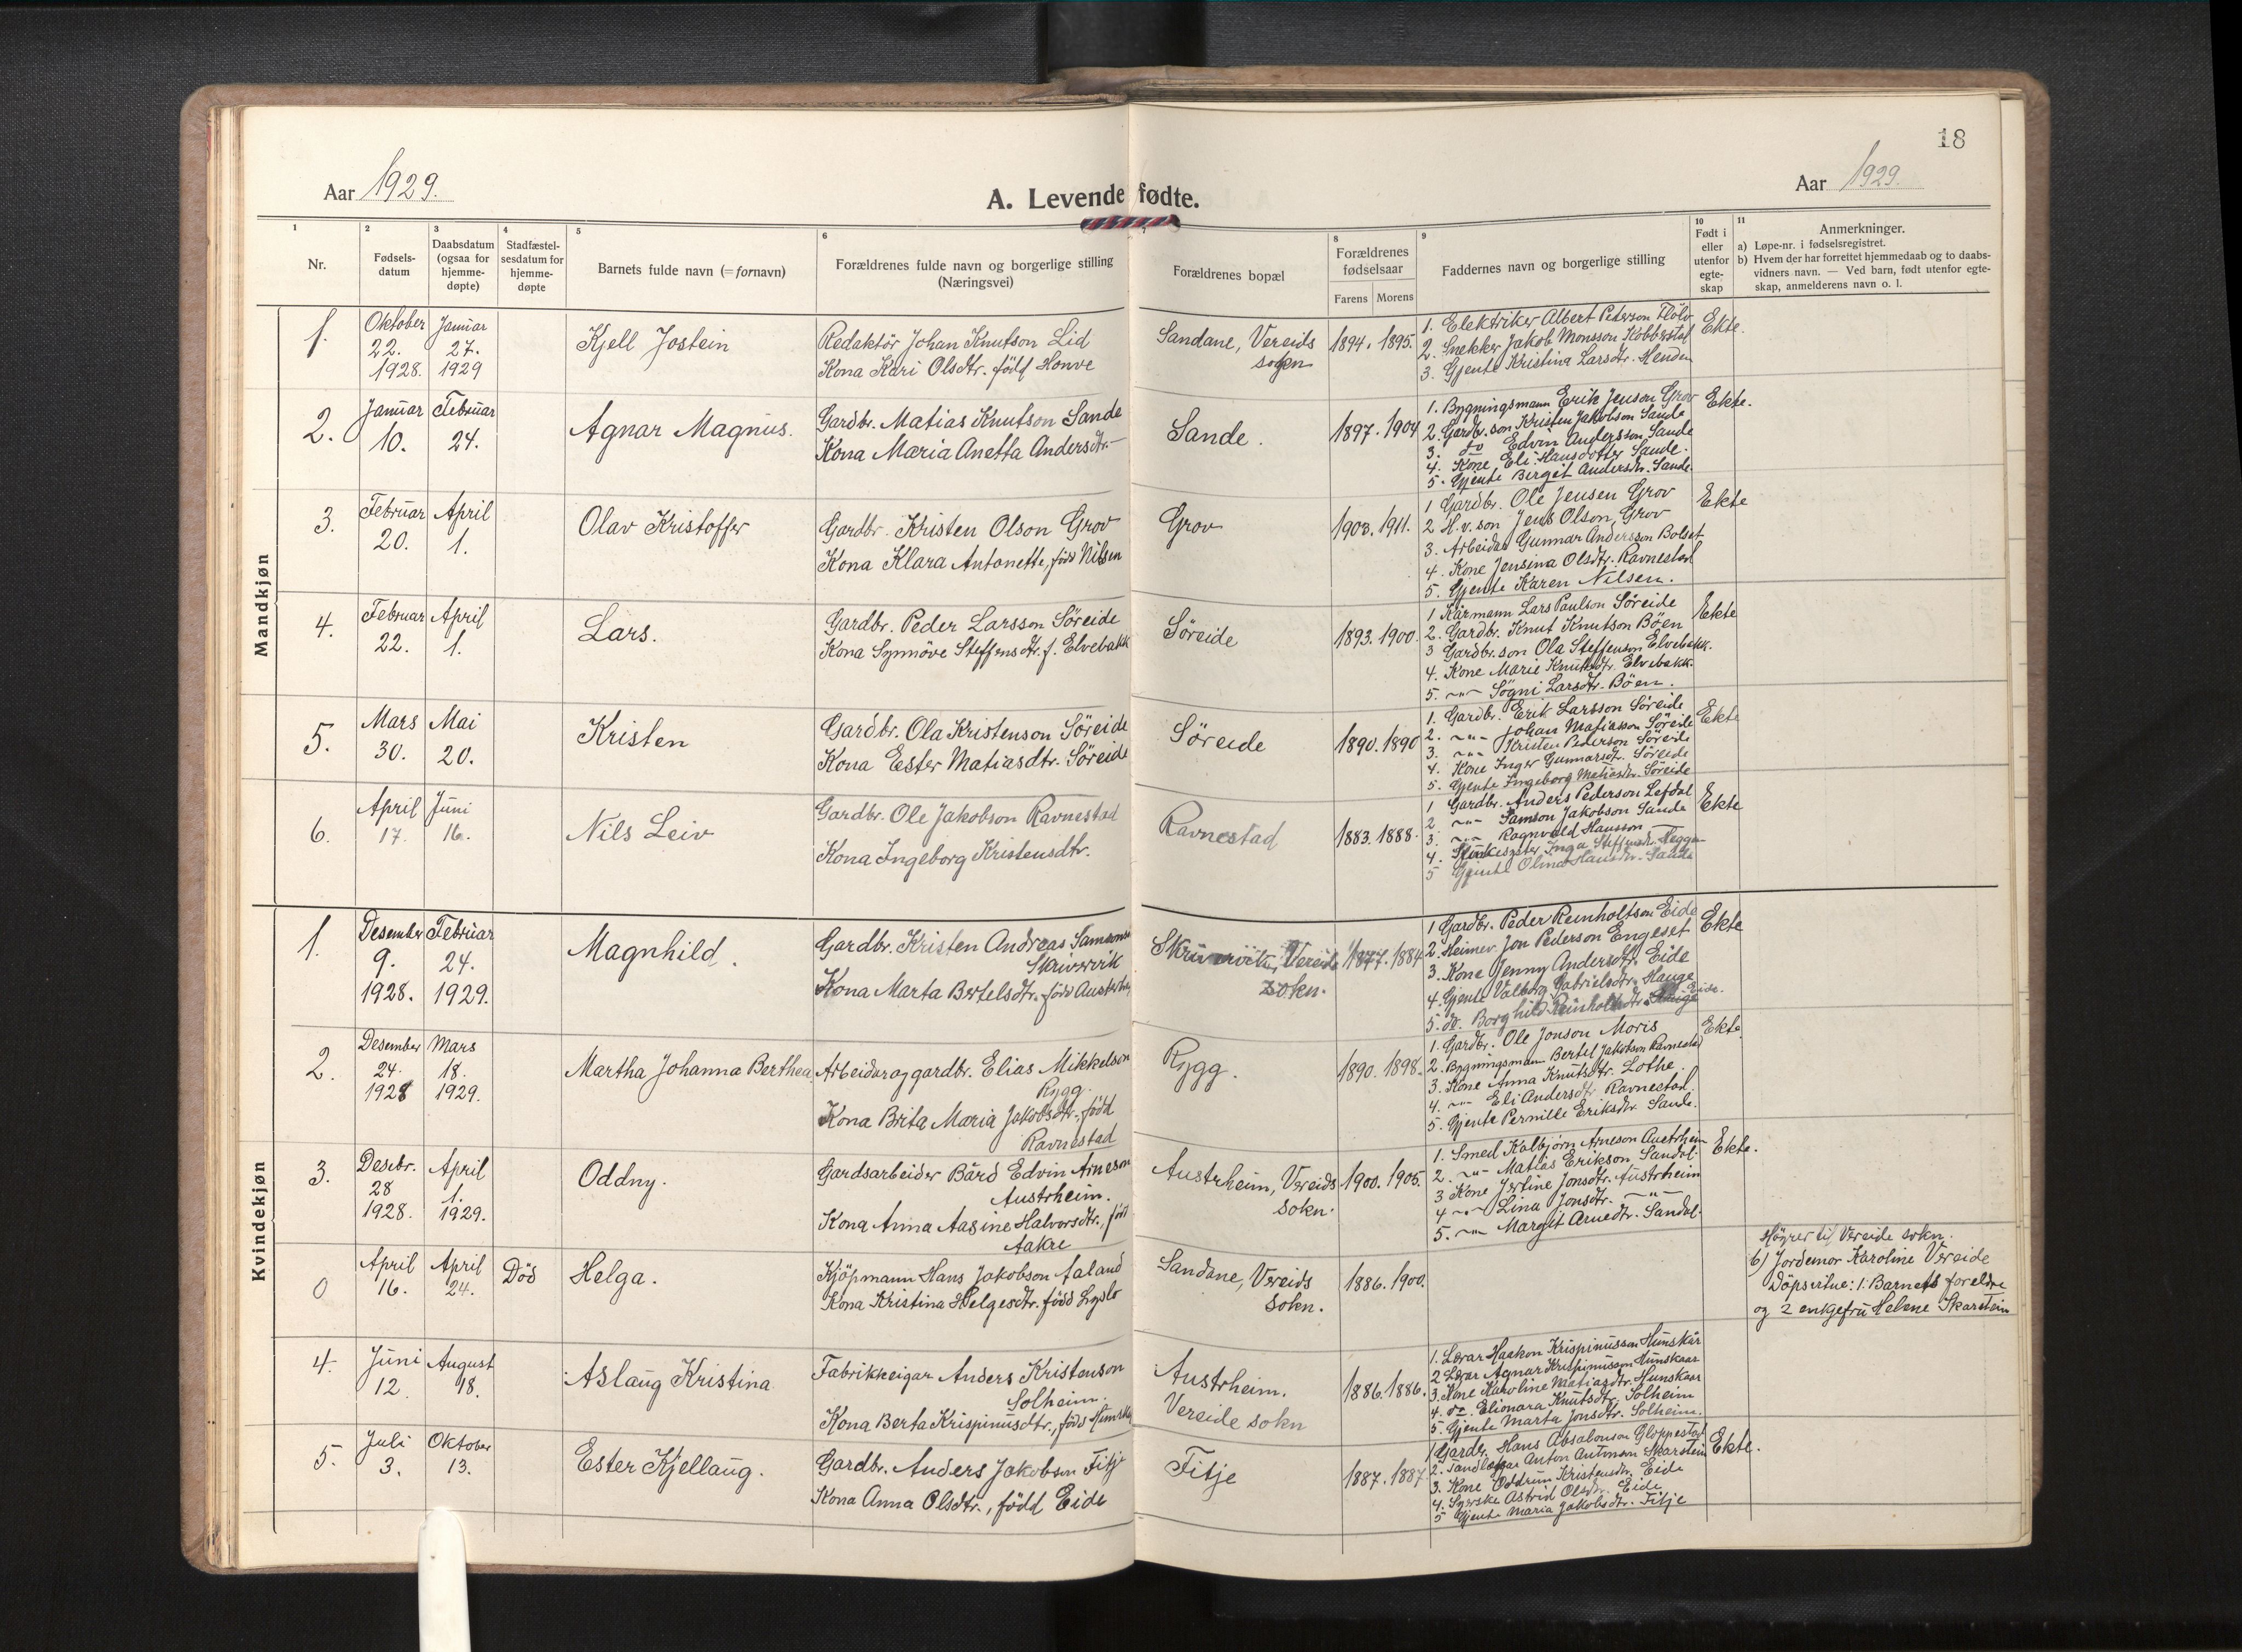 18
Aar 1929.
A. Levende fødte.
Aar 1929.
1
Nr.
2
Fødsels-
datum
3
Daabsdatum
(ogsaa for
hjemme-
døpte)
4
Stadfæstel-
sesdatum for
hjemme-
døpte
5
Barnets fulde navn (=fornavn)
6
Forældrenes fulde navn og borgerlige stilling
(Næringsvei)
7
Forældrenes bopæl
8
Forældrenes
fødselsaar
Farens Morens
9
Faddernes navn og borgerlige stilling
10
Født i
eller
utenfor
egte-
skap
11
Anmerkninger.
a) Løpe-nr. i fødselsregistret.
b) Hvem der har forrettet hjemmedaab og to daabs-
vidners navn. — Ved barn, født utenfor egte-
skap, anmelderens navn o. l.
Mandkjøn
1.
Oktober
22.
1928.
Januar
27.
1929
Kjell Jostein
Redaktör Johan Knutson Lid
Kona Kari Olsdtr. född Honve
Sandane, Vereids
sogen
1894. 1895.
1. Elektriker Albert Peterson Flölo
2. Snekker Jakob Monsson Kobberstad
3. Gjente Kristina Larsdtr. Henden
Ekte.
2.
Januar
10.
Februar
24.
Agnar Magnus.
Gardbr. Matias Knutson Sande
Kona Maria Anetta Andersdtr.
Sande.
1897. 1904
1. Bygningsmann Erik Jenson Grov
2. Gardb.son Kristen Jakobson Sande
3. do Edvin Andersson Sande
4. Kone Eli Hansdotter Sande.
5. Gjente Birgit Andersdtr. Sande
Ekte.
3.
Februar
20.
April
1.
Olav Kristoffer
Gardbr. Kristen Olson Grov
Kona Klara Antonette, född Nilsen
Grov
1903. 1911.
1 Gardbr. Ole Jensen Grov
2 H.v.son Jens Olson Grov
3. Arbeidar Gunnar Andersson Bolset
4. Kone Jensina Olsdtr. Ravnestad
5. Gjente Karen Nilsen.
Ekte
4.
Februar
22.
April
1.
Lars.
Gardbr. Peder Larsson Söreide
Kona Synnöve Steffensdtr. f. Elvebakk
Söreide
1893. 1900.
1 Kårmann Lars Paulson Söreide
2. Gardbr. Knut Knutson Böen
3 Gardbr.son Ola Steffenson Elvebakk.
4. Kone Marie Knutsdtr. Elvebakk.
5. -"- Sögni Larsdtr. Böen.
Ekte
5.
Mars
30.
Mai
20.
Kristen
Gardbr. Ola Kristenson Söreide
Kona Ester Matiasdtr. Söreide
Söreide
1890. 1890
1. Gardbr. Erik Larsson Söreide
2. -"- Johan Matiasson Söreide
3. -"- Kristen Pederson Söreide
4. Kone Inger Gunnarsdt. Söreide
5. Gjente Ingeborg Matiasdtr. Söreide
Ekte
6.
April
17.
Juni
16.
Nils Leiv
Gardbr. Ole Jakobson Ravnestad
Kona Ingeborg Kristensdtr.
Ravnestad
1883. 1888.
1 Gardbr. Anders Pederson Lefdal
2 -"- Samson Jakobson Sande
3. -"- Ragnvald Hansson —
4. Inga Steffensdtr.
5 Gjente Olina Hansdtr. Sande
Ekte
Kvindekjøn
1.
Desember
9.
1928.
Februar
24.
1929.
Magnhild.
Gardbr. Kristen Andreas Samsonson
Skrivarvik
Kona Marta Bertelsdtr. född
Vereide
sokn.
1877. 1884
1 Gardbr. Peder Reinholtson Eide
2. Heimev. Jon Pederson Engeset
3. Kone Jenny Andersdtr. Eide
4. Gjente Valborg Gabrielsdtr. Hauge
5. do. Borghild Reinholtsdtr. Eide.
Ekte
2.
Desember
24.
1928
Mars
18.
1929.
Martha Johanna Berthea
Arbeidar og gardbr. Elias Mikkelson
Rygg.
Kona Brita Maria Jakobsdtr., född
Ravnestad
Rygg.
1890. 1898.
1. Gardbr. Ole Jonson Moris
2. Bygningsmann Bertel Jakobson Ravnestad
3. Kone Anna Knutsdtr. Lothe.
4. -"- Eli Andersdtr. Ravnestad.
5. Gjente Pernille Eriksdtr. Sande.
Ekte.
3.
Desbr.
28
1928.
April
1.
1929.
Oddny.
Gardsarbeider Bård Edvin Arneson
Austrheim.
Kona Anna Aasine Halvorsdtr., född
Aakre
Austrheim, Vereids
sokn.
1900. 1905.
1. Smed Kolbjørn Arneson Austrheim
2. -"- Matias Erikson Sandal.
3 Kone Jertine Jonsdtr. Austrheim
4 -"- Lina Jonsdtr. —"—
5. -"- Margit Arnedtr. Sandal.
Ekte.
0
April
16.
April
24.
Död
Helga.
Kjöpmann Hans Jakobson Aaland
Kona Kristina Helgesdtr. född Lyslo
Sandane, Vereids
Sokn.
1886. 1900.
Höyrer til Vereide sokn.
b) Jordemor Karoline Vereide
Döpsvitne: 1. Barnets foreldre
og 2 enkefru Helene Skarstein
4.
Juni
12.
August
18.
Aslaug Kristina
Fabrikkeigar Anders Kristenson
Solheim.
Kona Berta Krispinusdtr., född Hunskår
Austrheim.
Vereide sokn
1886. 1886.
1. Lærar Haakon Krispinusson Hunskår
2 Lærar Agnar Krispinusson Hunskaar
3. Kone Karoline Matiasdtr. Hunskaar
4. do. Elionora Knutsdtr. Solheim
5. Gjente Marta Jonsdtr. Solheim.
5.
Juli
3.
Oktober
13.
Ester Kjellaug.
Gardbr. Anders Jakobson Fitje
Kona Anna Olsdtr., född Eide
Fitje
1887. 1887
1 Gardbr. Hans Absalonson Gloppestad
2. Tandlækjar Anton Antonson Skarstein
3. Kone Oddrun Kristensdtr. Eide
4. Syerske Astrid Olsdtr. Eide
5 Gjente Maria Jakobsdtr. Fitje
Ekte.